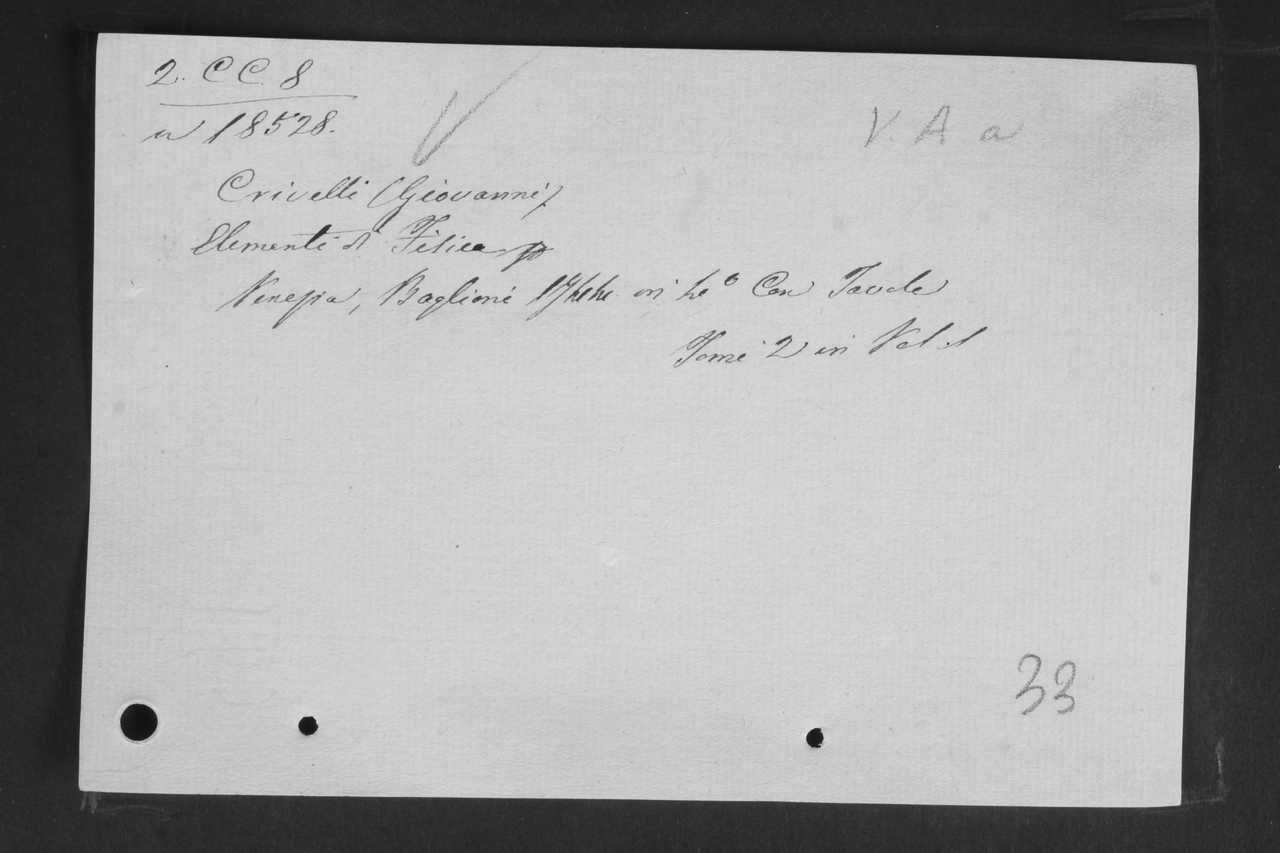 2. CC. 8
n 18528.
V. A a
Crivelli (Giovanni)
Elementi di Fisica
Venezia, Baglioni 1744. in 4º Con Tavole
Tomi 2 in Vol. 1
33